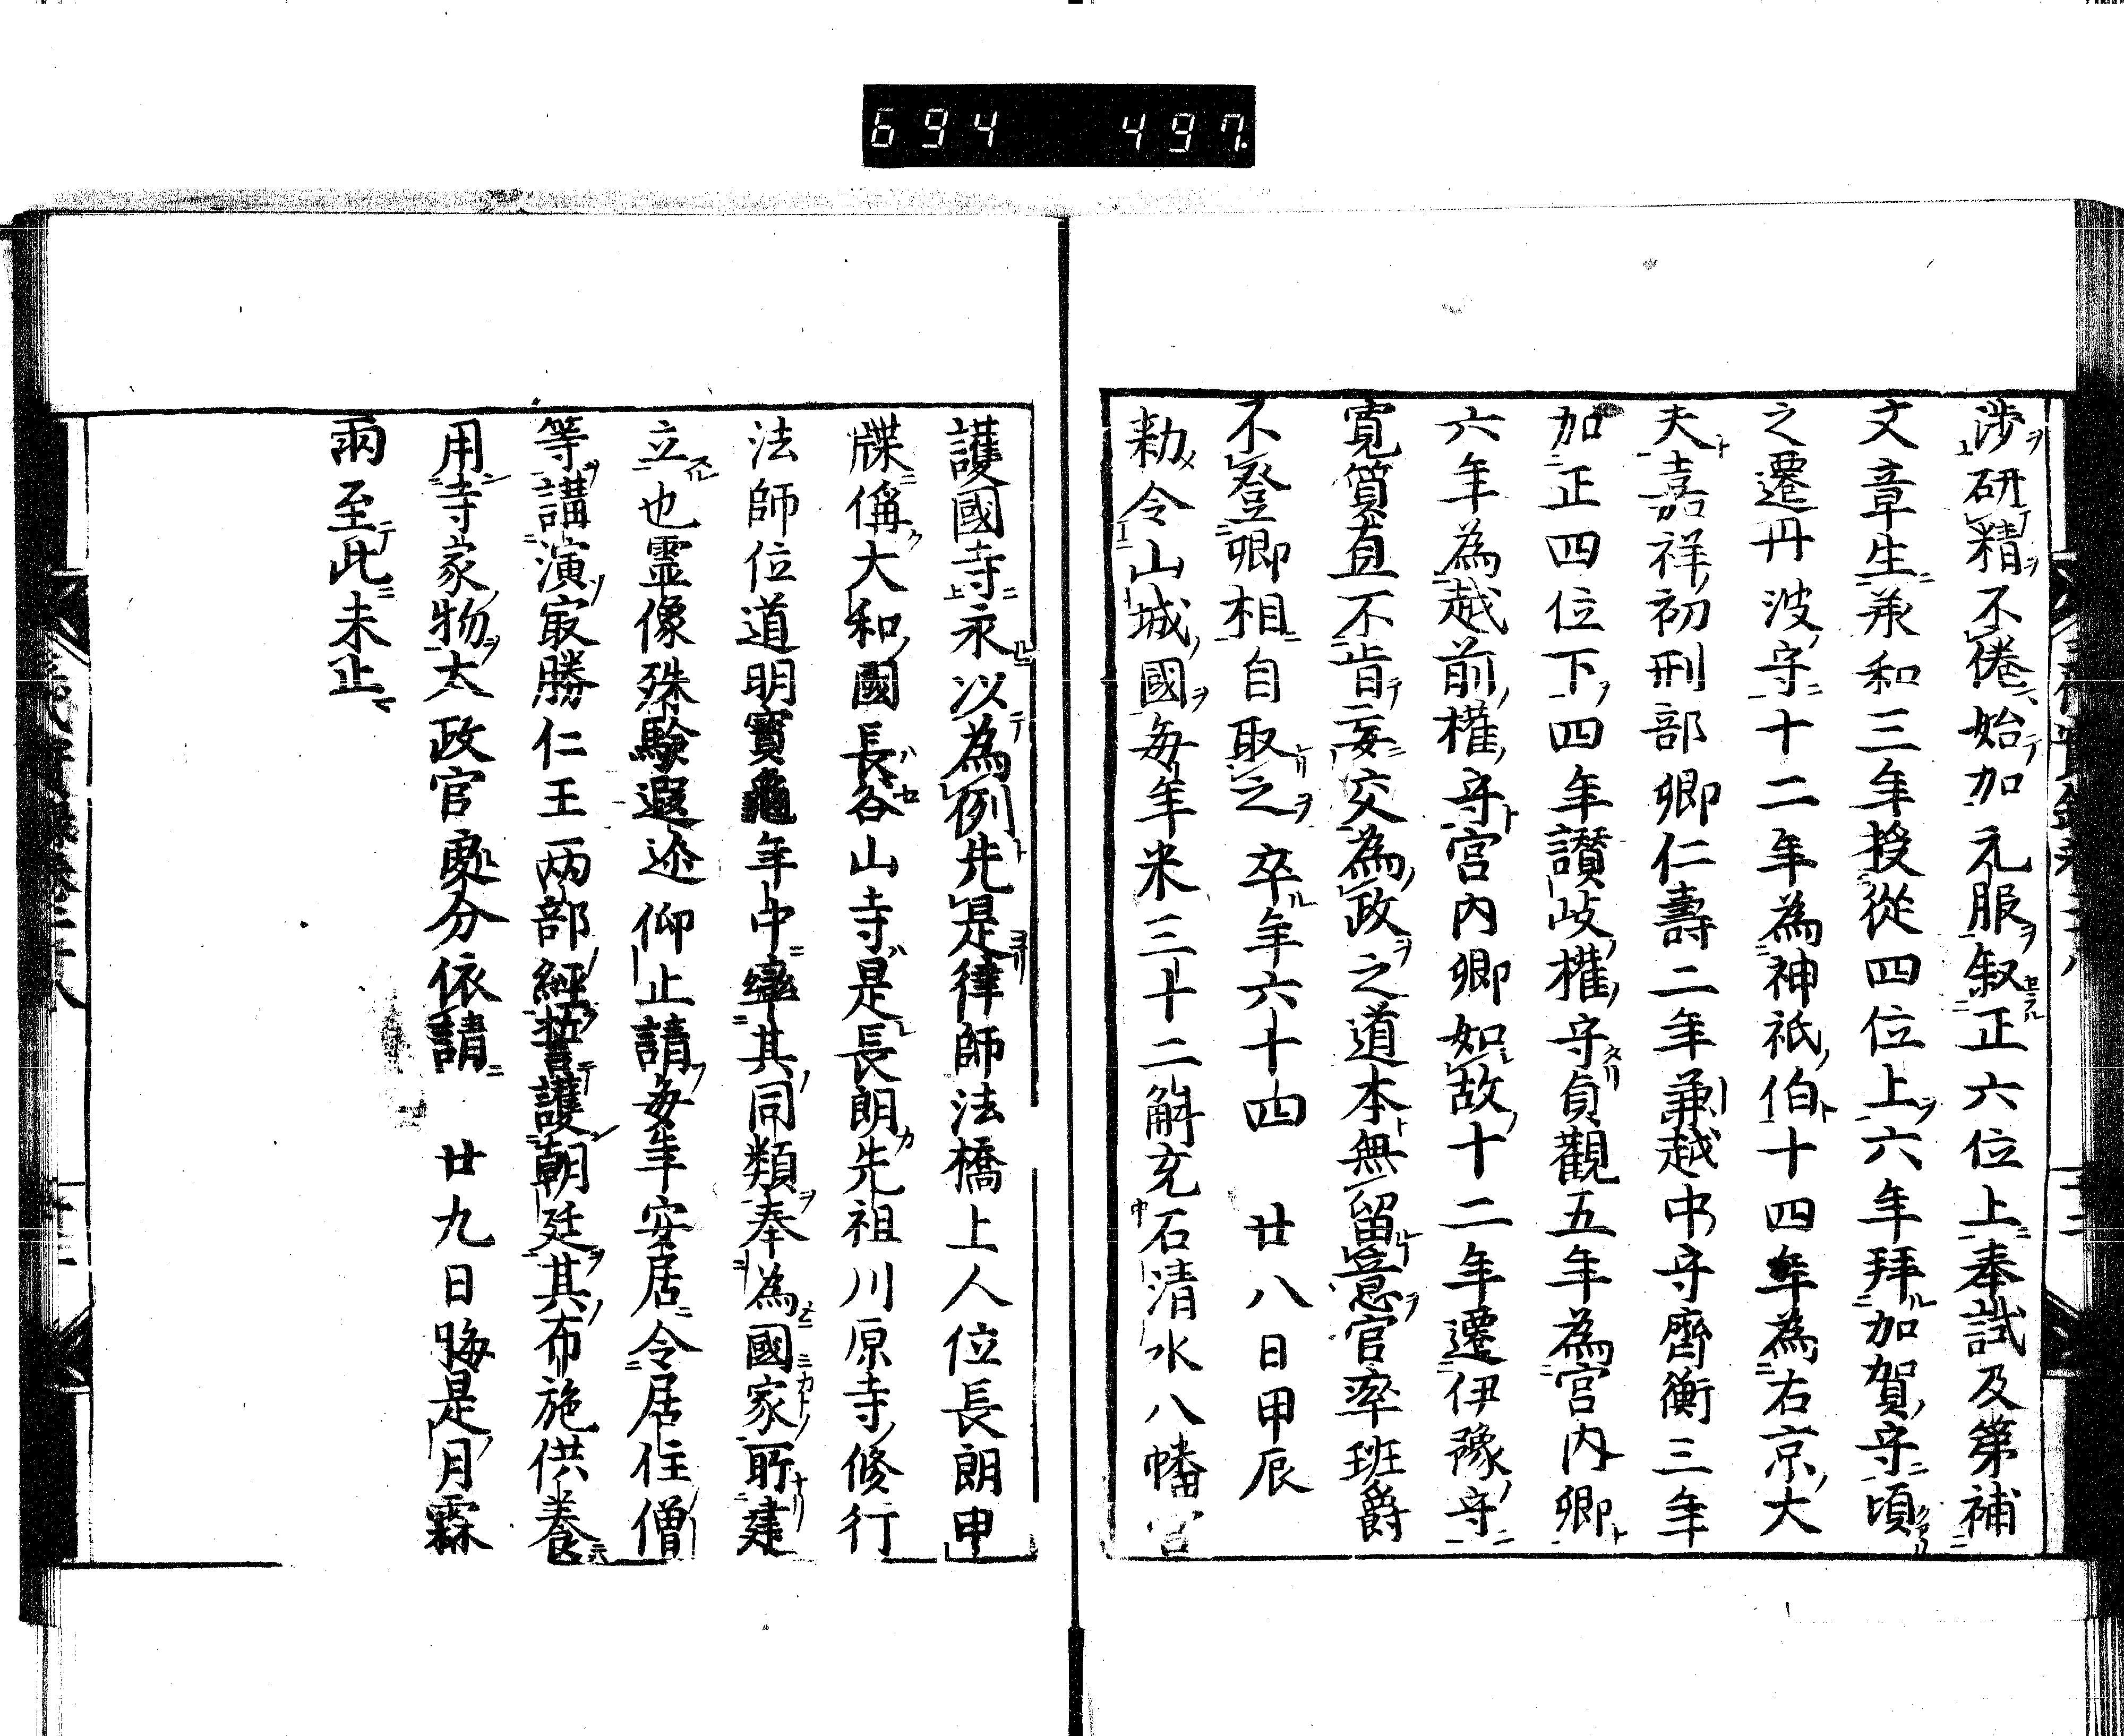 694 497.
渉研精不倦始加元服叙正六位上奉試及第補
文章生承和三年授從四位上六年拜加賀守頃
之遷丹波守十二年為神祇伯十四年為右京大
夫嘉祥初刑部卿仁壽二年兼越中守齊衡三年
加正四位下四年讃岐權守貞觀五年為宮内卿
六年為越前權守宮内卿如故十二年遷伊豫守
寛質直不肯妄交為政之道本無留意官率班爵
不登卿相自取之卒年六十四 廿八日甲辰
勑令山城國毎年米三十二斛充石清水八幡宮
護國寺永以為例先是律師法橋上人位長朗申
牒偁大和國長谷山寺是長朗先祖川原寺修行
法師位道明寶龜年中率其同類奉為國家所建
立也霊像殊驗遐迩仰止請毎年安居令居住僧
等講演冣勝仁王両部經誓護朝廷其布施供養
用寺家物太政官處分依請 廿九日晦是月霖
雨至此未止